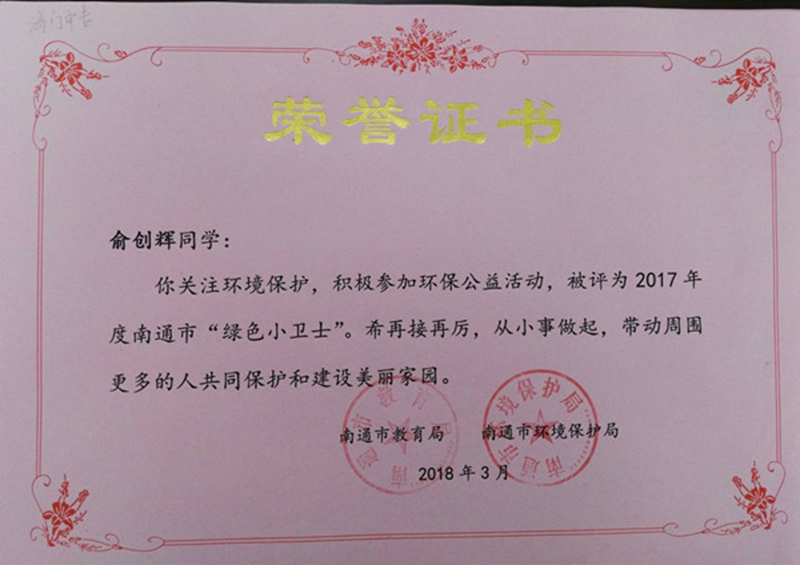 海门中专
荣誉证书
俞创辉同学：
你关注环境保护，积极参加环保公益活动，被评为2017年
度南通市“绿色小卫士”。希再接再厉，从小事做起，带动周围
更多的人共同保护和建设美丽家园。
南通市教育局 南通市环境保护局
2018年3月
南通市教育局
南通市环境保护局